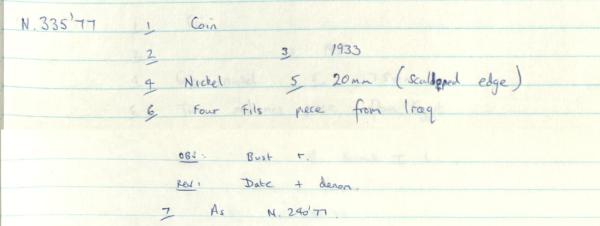 N.335'77 1 Coin
2 3 1933
4 Nickel 5 20mm (sculpped edge)
6 Four Fils piece from Iraq
OBV: Bust r.
REV: Date + denom.
7 As N.240'77.